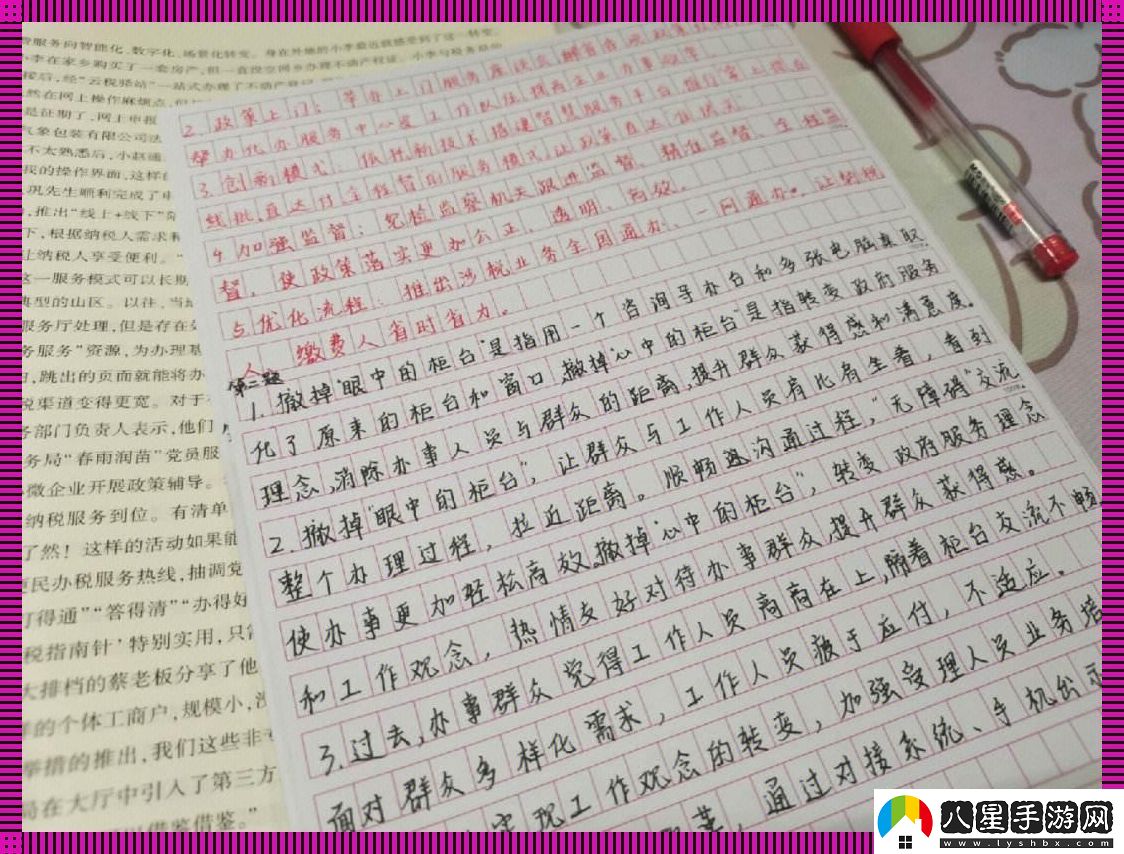 服务向智能化、数字化、场景化转变。身在外地的小李最近就感受到了这一转变。
小李在家乡购买了一套房产,但一直没空回乡办理不动产权证。小李与税务局的
接后,经“云税驿站”一站式办理了不动产
然在网上操作麻烦点,但
是征期了,网上申报
气象包装有限公司法
不太熟悉后,小赵通
我的操作界面,这样
巩先生顺利完成了申
,推出“线上+线下”
下,根据纳税人需求
让纳税人享受便利。”
这一服务模式可以长期
典型的山区。以往,当
服务厅处理,但是存在
务服务”资源,为办理
,跳出的页面就能将办
税渠道变得更宽。对于
务部门负责人表示,他们
务局“春雨润苗”党员服
小微企业开展政策辅导。
纳税服务到位。有清单
了然!这样的活动如果能
便民办税服务热线,抽调党
打得通”“答得清”“办得好
税指南针’特别实用,只
大排档的蔡老板分享了他
样的个体工商户,规模小,
举措的推出,我们这些非
局在大厅中引入了第三方
以借鉴借鉴。”
2.政策上门:举办上门服务座谈会,
帮办代办服务中心
3.创新模式:依托新技术搭建智慧服务平台,
线批、直达付全程督的服务模式,让政策直达
4.加强监督:纪检监察机关跟进监督、精准监督、全程监
督,使政策落实更加公正、透明、高效。
5.优化流程:推出涉税业务全国通办、一网通办。让纳税
人、缴费人省时省力。
第二题
1.撤掉“眼中的柜台”是指用一个咨询导办台和多张电脑桌取
代了原来的柜台和窗口,撤掉“心中的柜台”是指转变政府服务
理念,消除办事人员与群众的距离,提升群众获得感和满意度。
2.撤掉“眼中的柜台”,让群众与工作人员肩比肩坐着,看到
整个办理过程,拉近距离。顺畅沟通过程,“无障碍”交流
使办事更加轻松高效。撤掉“心中的柜台”,转变政府服务理念
和工作观念,热情友好对待办事群众,提升群众获得感。
3.过去,办事群众觉得工作人员高高在上,隔着柜台交流不畅
面对群众多样化需求,工作人员疲于应付,不适应。
实现工作观念的转变,加强受理人员业务培
通过对接系统、手机
八星手游网
www.lyshbx.com